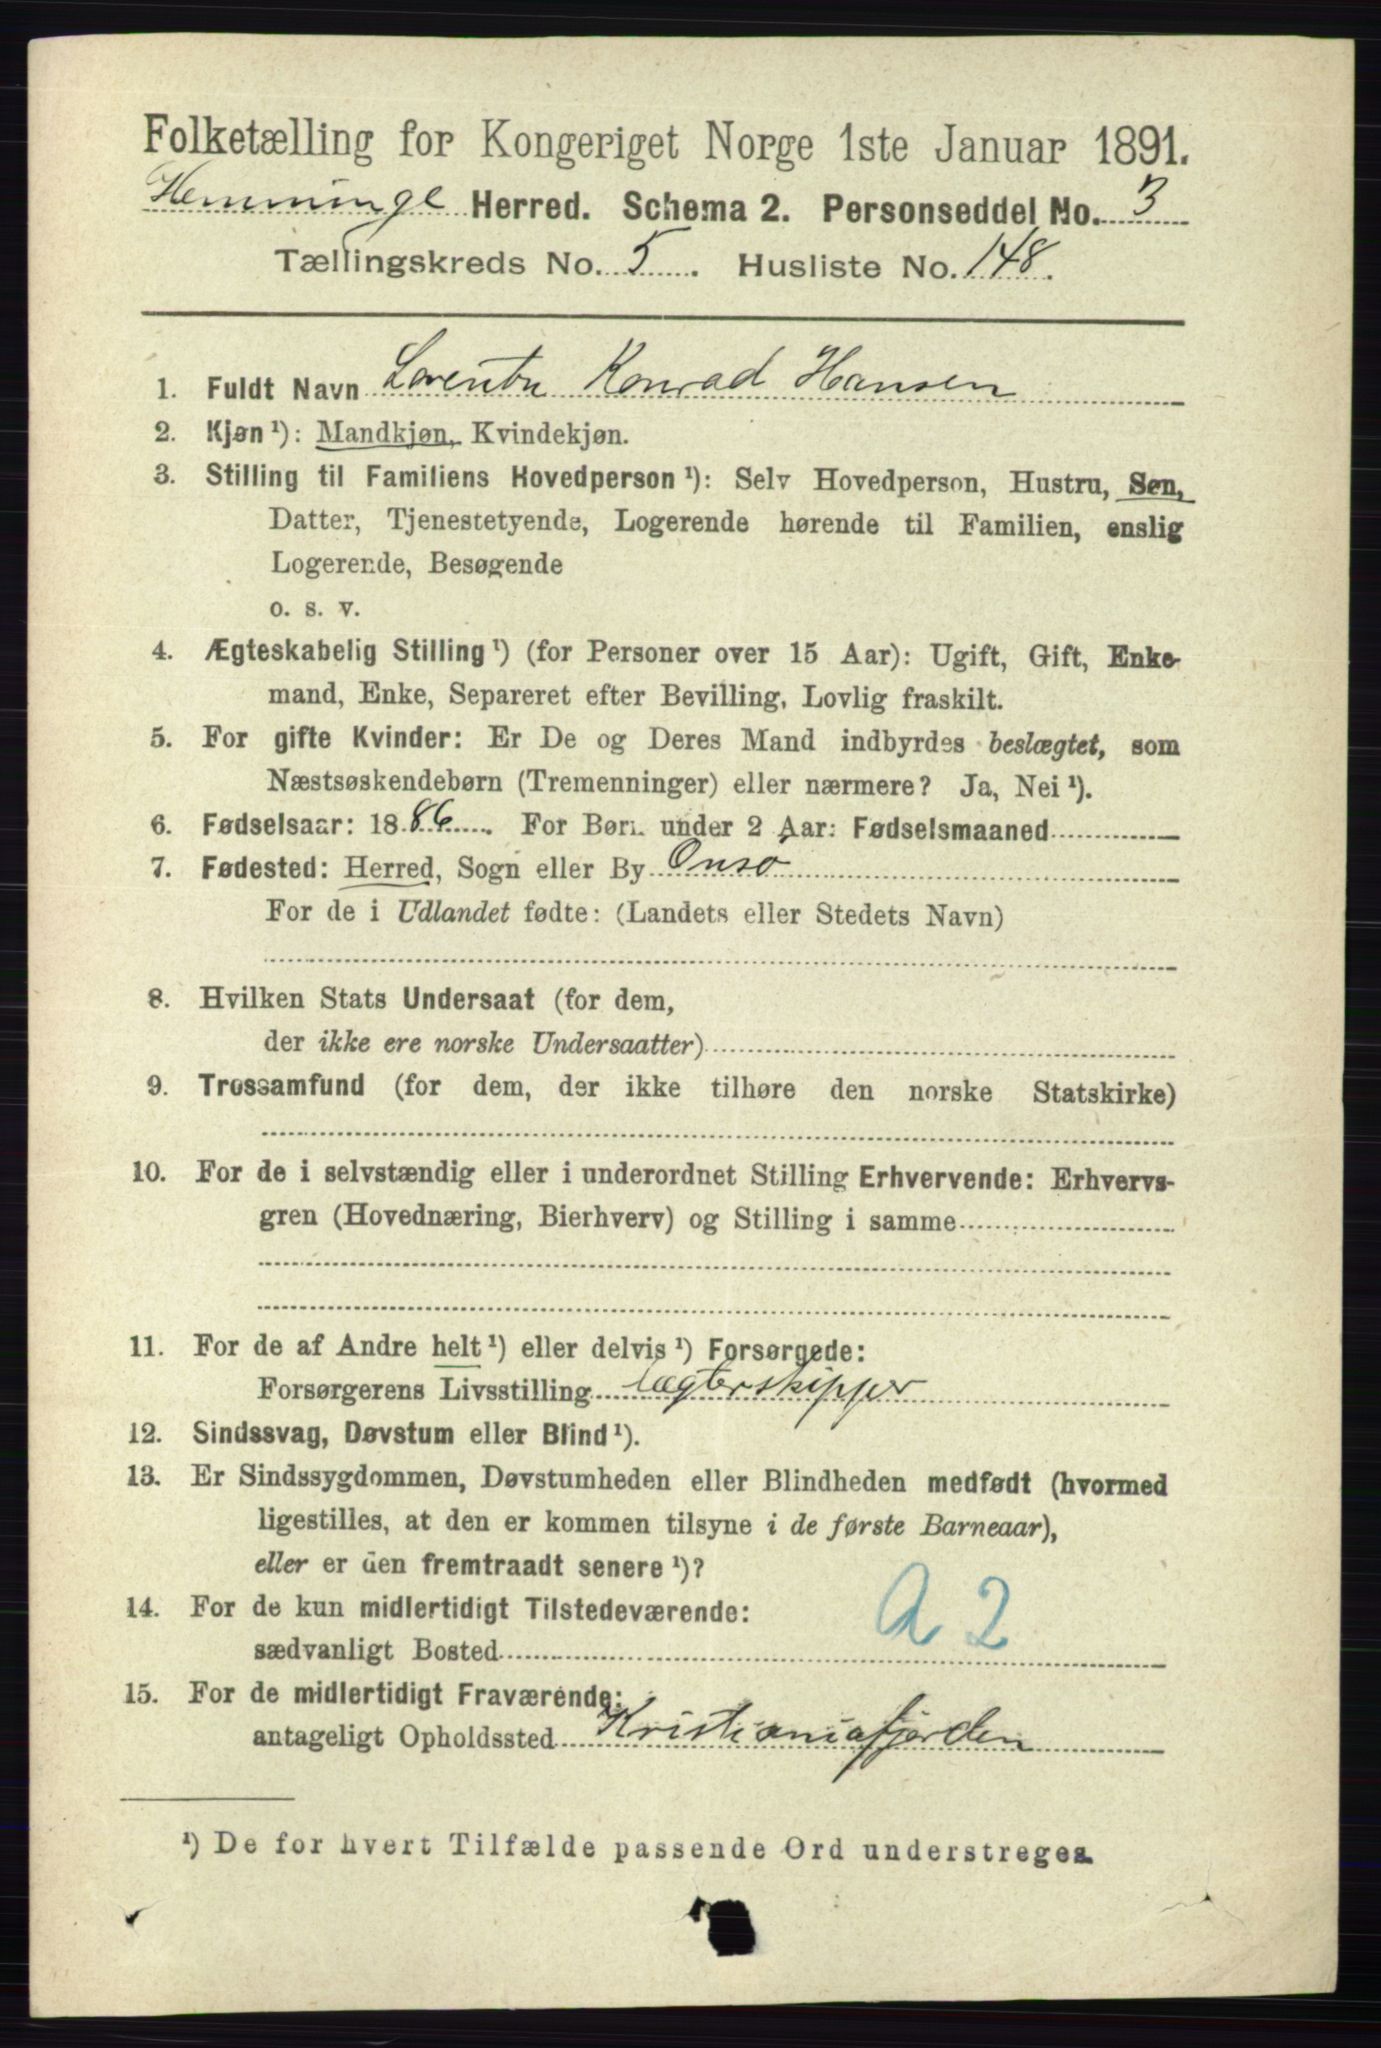 Folketælling for Kongeriget Norge 1ste Januar 1891.
Herred. Schema 2. Personseddel No. 3
Tællingskreds No. 5. Husliste No. 148.
1. Fuldt Navn Konrad Hansen
2. Kjøn ¹): Mandkjøn, Kvindekjøn.
3. Stilling til Familiens Hovedperson ¹): Selv Hovedperson, Hustru, Søn,
Datter, Tjenestetyende, Logerende hørende til Familien, enslig
Logerende, Besøgende
o. s. v.
4. Ægteskabelig Stilling ¹) (for Personer over 15 Aar): Ugift, Gift, Enke-
mand, Enke, Separeret efter Bevilling, Lovlig fraskilt.
5. For gifte Kvinder: Er De og Deres Mand indbyrdes beslægtet, som
Næstsøskendebørn (Tremenninger) eller nærmere? Ja, Nei ¹).
6. Fødselsaar: 1886. For Børn under 2 Aar: Fødselsmaaned
7. Fødested: Herred, Sogn eller By Onsø
For de i Udlandet fødte: (Landets eller Stedets Navn)
8. Hvilken Stats Undersaat (for dem,
der ikke ere norske Undersaatter)
9. Trossamfund (for dem, der ikke tilhøre den norske Statskirke)
10. For de i selvstændig eller i underordnet Stilling Erhvervende: Erhvervs-
gren (Hovednæring, Bierhverv) og Stilling i samme
11. For de af Andre helt ¹) eller delvis ¹) Forsørgede:
Forsørgerens Livsstilling lægterskipper
12. Sindssvag, Døvstum eller Blind ¹).
13. Er Sindssygdommen, Døvstumheden eller Blindheden medfødt (hvormed
ligestilles, at den er kommen tilsyne i de første Barneaar),
eller er den fremtraadt senere ¹)?
14. For de kun midlertidigt Tilstedeværende:
sædvanligt Bosted
a 2
15. For de midlertidigt Fraværende:
antageligt Opholdssted Kristianiafjorden
¹) De for hvert Tilfælde passende Ord understreges.